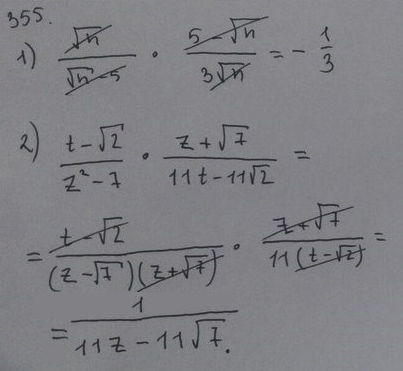 355.
1) √n / (√n - 5) · (5 - √n) / (3√n) = - 1/3
2) (t - √2) / (z² - 7) · (z + √7) / (11t - 11√2) =
= (t - √2) / ((z - √7)(z + √7)) · (z + √7) / (11(t - √2)) =
= 1 / (11z - 11√7).